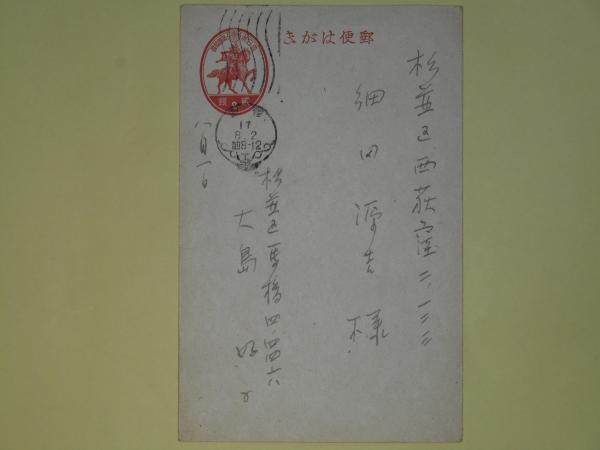 郵便はがき
杉並区西荻窪二、一三二
細田源吉様
17
8.2
前8-12
杉並区馬橋四、四四六
大島
八月一日